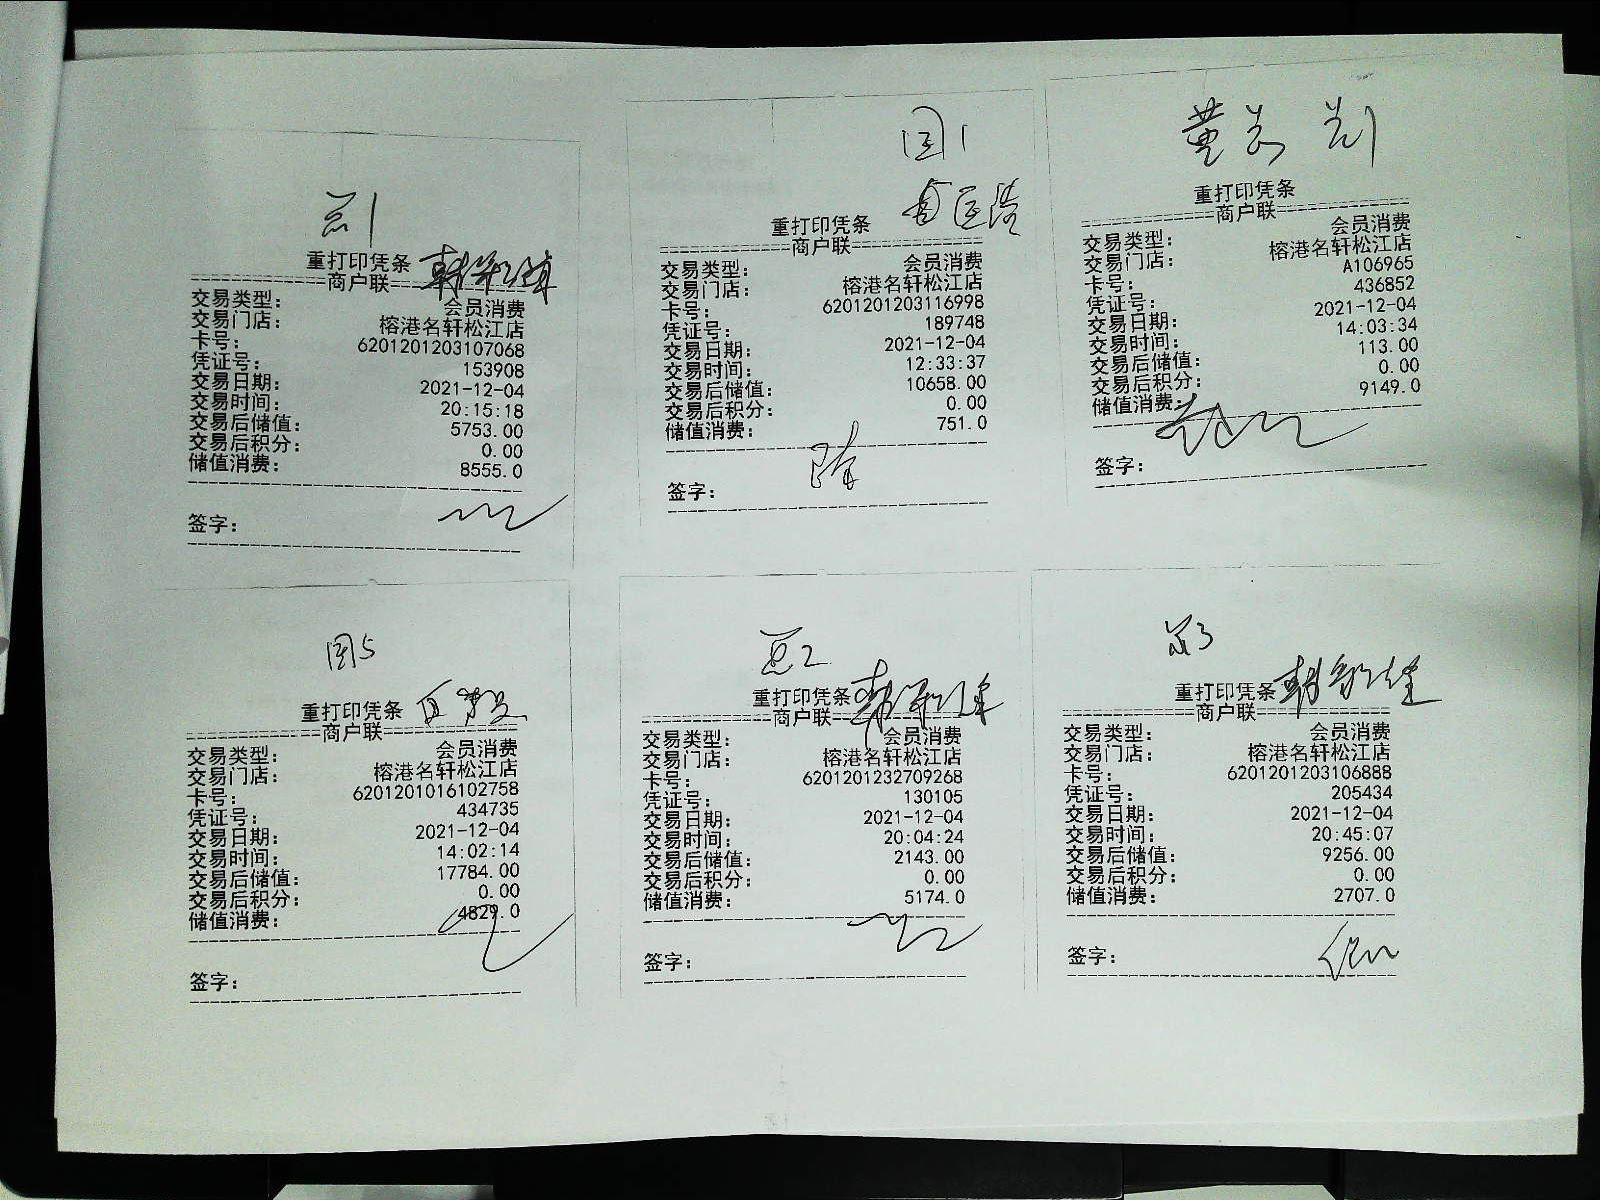 重打印凭条
商户联
交易类型: 会员消费
交易门店: 榕港名轩松江店
卡号: 6201201203107068
凭证号: 153908
交易日期: 2021-12-04
交易时间: 20:15:18
交易后储值: 5753.00
交易后积分: 0.00
储值消费: 8555.0
签字:
国1
重打印凭条
商户联
交易类型: 会员消费
交易门店: 榕港名轩松江店
卡号: 6201201203116998
凭证号: 189748
交易日期: 2021-12-04
交易时间: 12:33:37
交易后储值: 10658.00
交易后积分: 0.00
储值消费: 751.0
签字:
重打印凭条
商户联
交易类型: 会员消费
交易门店: 榕港名轩松江店
卡号: A106965
凭证号: 436852
交易日期: 2021-12-04
交易时间: 14:03:34
交易后储值: 113.00
交易后积分: 0.00
储值消费: 9149.0
签字:
国5
重打印凭条
商户联
交易类型: 会员消费
交易门店: 榕港名轩松江店
卡号: 6201201016102758
凭证号: 434735
交易日期: 2021-12-04
交易时间: 14:02:14
交易后储值: 17784.00
交易后积分: 0.00
储值消费: 4829.0
签字:
重打印凭条
商户联
交易类型: 会员消费
交易门店: 榕港名轩松江店
卡号: 6201201232709268
凭证号: 130105
交易日期: 2021-12-04
交易时间: 20:04:24
交易后储值: 2143.00
交易后积分: 0.00
储值消费: 5174.0
签字:
重打印凭条
商户联
交易类型: 会员消费
交易门店: 榕港名轩松江店
卡号: 6201201203106888
凭证号: 205434
交易日期: 2021-12-04
交易时间: 20:45:07
交易后储值: 9256.00
交易后积分: 0.00
储值消费: 2707.0
签字: